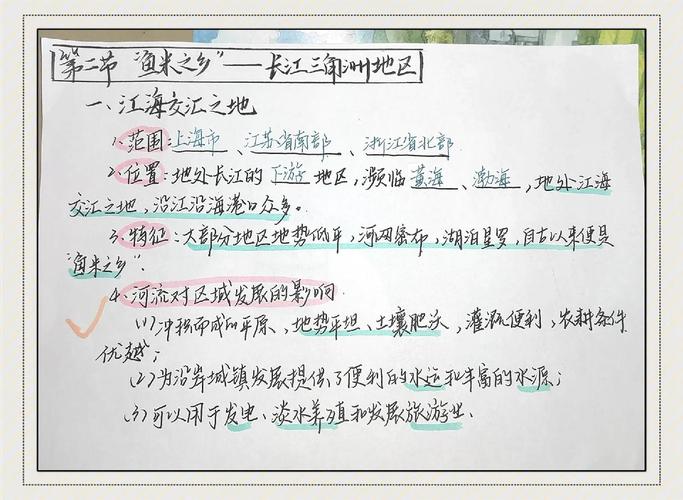 第二节 "渔米之乡"——长江三角洲地区
一、江海交汇之地
1.范围:上海市、江苏省南部、浙江省北部
2.位置:地处长江的下游地区,濒临黄海、渤海,地处江海
交汇之地,沿江沿海港口众多。
3.特征:大部分地区地势低平,河网密布,湖泊星罗,自古以来便是
"渔米之乡".
4.河流对区域发展的影响.
(1)冲积而成的平原,地势平坦、土壤肥沃,灌溉便利,农耕条件
优越;
(2)为沿岸城镇发展提供了便利的水运和丰富的水源;
(3)可以用于发电、淡水养殖和发展旅游业.